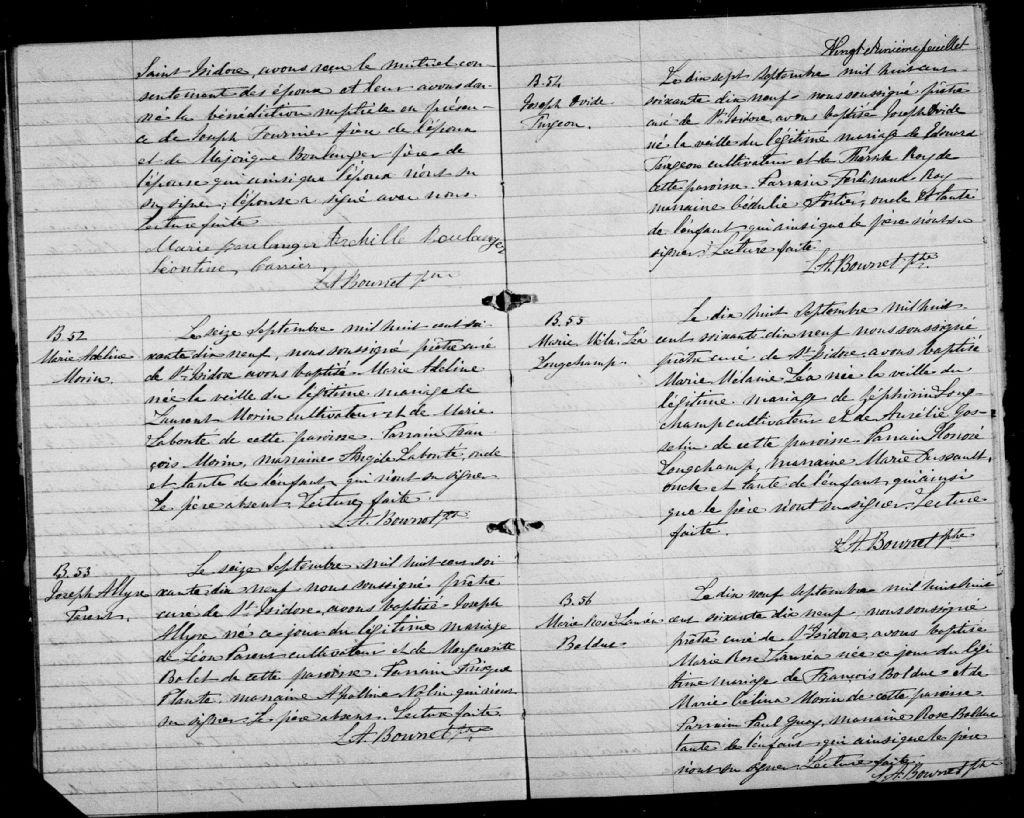 Saint Isidore, avons reçu le mutuel con-
sentement des époux et leur avons don-
né la bénédiction nuptiale en présen-
ce de Joseph Fournier père de l'époux
et de Majorique Boulanger père de
l'épouse qui ainsi que l'époux n'ont su
signer; l'épouse a signé avec nous
Lecture faite
Marie Boulanger Achille Boulanger
Léontine Carrier
L. A. Bournet ptre
B. 52
Marie Adéline
Morin.
Le seize Septembre mil huit cent soi-
xante dix neuf, nous soussigné prêtre curé
de St. Isidore avons baptisé Marie Adeline
née la veille du légitime mariage de
Laurent Morin cultivateur et de Marie
Labonte de cette paroisse. Parrain Fran-
çois Morin, marraine Angèle Labonté, oncle
et tante de l'enfant, qui n'ont su signer
Le père absent. Lecture faite.
L. A. Bournet ptre
B. 53
Joseph Allyre
Parent.
Le seize Septembre mil huit cent soi
xante dix neuf nous soussigné prêtre
curé de St. Isidore, avons baptisé Joseph
Allyre né ce jour du légitime mariage
de Léon Parent cultivateur et de Marguerite
Bolet de cette paroisse. Parrain Prisque
Plante, marraine Apolline Nolin qui n'ont
su signer. Le père absent. Lecture faite
L. A. Bournet ptre
Vingt deuxième feuillet
B. 54
Joseph Ovide
Turgeon.
Le dix sept Septembre mil huit cent
soixante dix neuf nous soussigné prêtre
curé de St. Isidore avons baptisé Joseph Ovide
né la veille du légitime mariage de Edouard
Turgeon cultivateur et de Roy de
cette paroisse. Parrain Ferdinand Roy
marraine Cédulie Fortier, oncle et tante
de l'enfant, qui ainsi que le père n'ont su
signer. Lecture faite
L. A. Bournet ptre.
B. 55
Marie Méla. Léa
Longchamp.
Le dix huit Septembre mil huit
cent soixante dix neuf nous soussigné
prêtre curé de St. Isidore, avons baptisé
Marie Mélanie Léa née la veille du
légitime mariage de Zéphirin Long-
champ cultivateur et de Aurélie Gos-
selin de cette paroisse. Parrain Honoré
Longchamp, marraine Marie Dussault,
oncle et tante de l'enfant qui ainsi
que le père n'ont su signer. Lecture
faite.
L. A. Bournet ptre
B. 56
Marie Rose
Bolduc.
Le dix neuf septembre mil huit
cent soixante dix neuf nous soussigné
prêtre curé de St. Isidore, avons baptisé
Marie Rose née ce jour du légi
time mariage de François Bolduc et de
Marie Célina Morin de cette paroisse
Parrain Paul Guay, marraine Rose Bolduc
tante de l'enfant qui ainsi que le père
n'ont su signer. Lecture faite
L. A. Bournet ptre